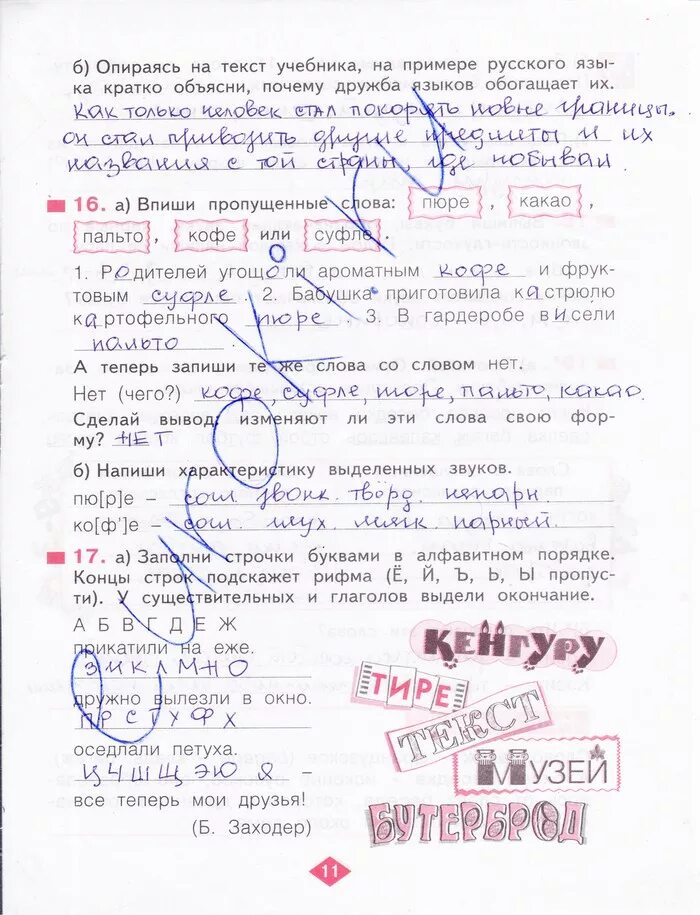 б) Опираясь на текст учебника, на примере русского язы-
ка кратко объясни, почему дружба языков обогащает их.
Как только человек стал покорять новые границы,
он стал привозить другие предметы и их
названия с той страны, где побывал.
16. а) Впиши пропущенные слова: пюре , какао ,
пальто , кофе или суфле .
1. Родителей угощали ароматным кофе и фрук-
товым суфле . 2. Бабушка приготовила кастрюлю
картофельного пюре . 3. В гардеробе висели
пальто
А теперь запиши те же слова со словом нет.
Нет (чего?) кофе, суфле, пюре, пальто, какао.
Сделай вывод: изменяют ли эти слова свою фор-
му? НЕТ
б) Напиши характеристику выделенных звуков.
пю[р]е – согл. звонк. твёрд. непарн.
ко[ф']е – согл. глух. мягк. парный.
17. а) Заполни строчки буквами в алфавитном порядке.
Концы строк подскажет рифма (Ё, Й, Ъ, Ь, Ы пропус-
ти). У существительных и глаголов выдели окончание.
А Б В Г Д Е Ж
прикатили на еже.
З И К Л М Н О
дружно вылезли в окно.
П Р С Т У Ф Х
оседлали петуха.
Ц Ч Ш Щ Э Ю Я
все теперь мои друзья!
(Б. Заходер)
КЕНГУРУ
ТИРЕ
ТЕКСТ
МУЗЕЙ
БУТЕРБРОД
uroki.ru
11